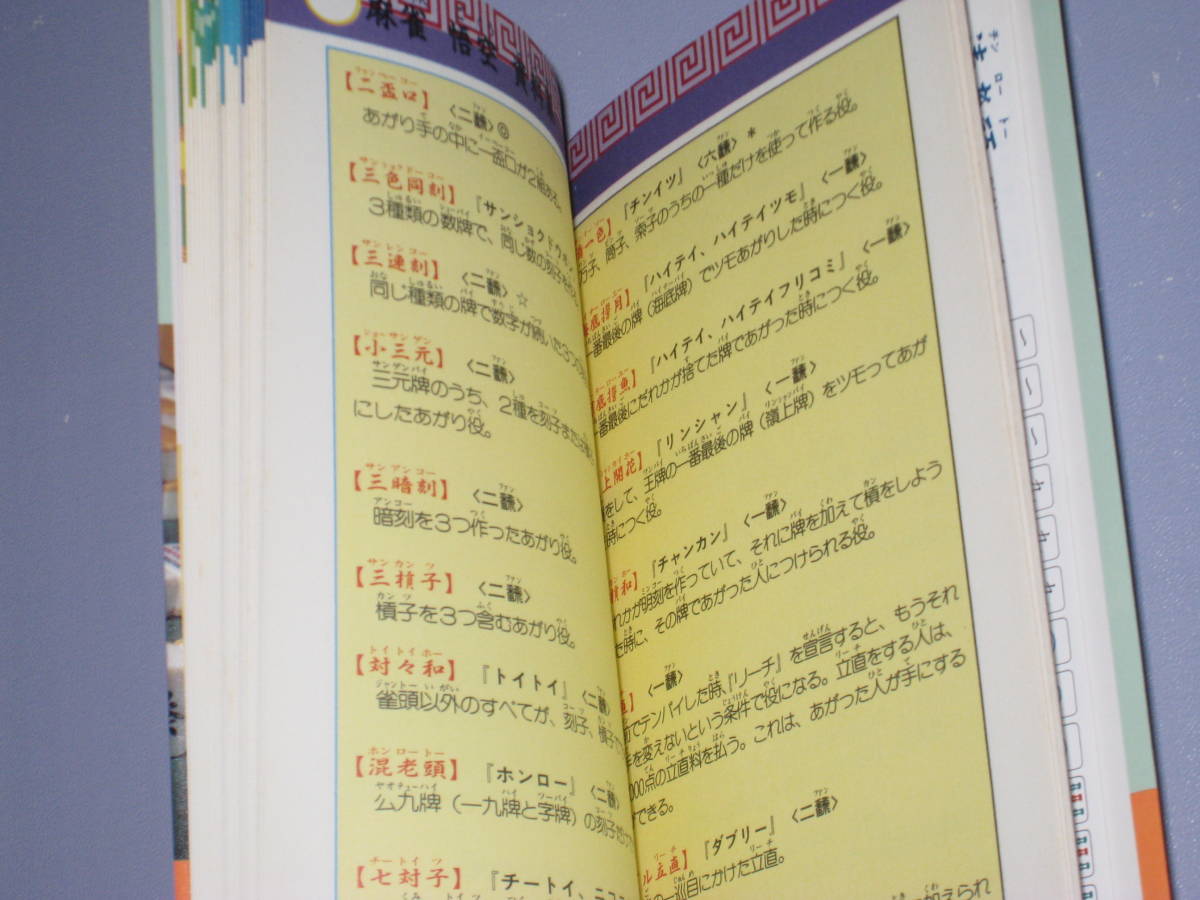 麻雀 悟空
【二盃口】〈二翻〉◎
あがり手の中に一盃口が2組ある。
【三色同刻】『サンショクドウコ
3種類の数牌で、同じ数の刻子を
【三連刻】〈二翻〉☆
同じ種類の牌で数字が続いた3つの
【小三元】〈二翻〉
三元牌のうち、2種を刻子または
にしたあがり役。
【三暗刻】〈二翻〉
暗刻を3つ作ったあがり役。
【三槓子】〈二翻〉
槓子を3つ含むあがり役。
【対々和】『トイトイ』〈二翻〉
雀頭以外のすべてが、刻子、槓子で
【混老頭】『ホンロー』〈二翻〉
么九牌（一九牌と字牌）の刻子だけ
【七対子】『チートイ、ニコ
一色】『チンイツ』〈六翻〉*
子、筒子、索子のうちの一種だけを使って作る役。
底撈月】『ハイテイ、ハイテイツモ』〈一翻〉
一番最後の牌（海底牌）でツモあがりした時につく役。
底撈魚】『ハイテイ、ハイテイフリコミ』〈一翻〉
一番最後にだれかが捨てた牌であがった時につく役。
上開花】『リンシャン』〈一翻〉
をして、王牌の一番最後の牌（嶺上牌）をツモってあが
時につく役。
槓和】『チャンカン』〈一翻〉
れかが明刻を作っていて、それに牌を加えて槓をしよう
た時に、その牌であがった人につけられる役。
直】〈一翻〉
前でテンパイした時、『リーチ』を宣言すると、もうそれ
手を変えないという条件で役になる。立直をする人は、
000点の立直料を払う。これは、あがった人が手にする
できる。
ル立直】『ダブリー』〈二翻〉
の一巡目にかけた立直。
加えられ
チンロートー